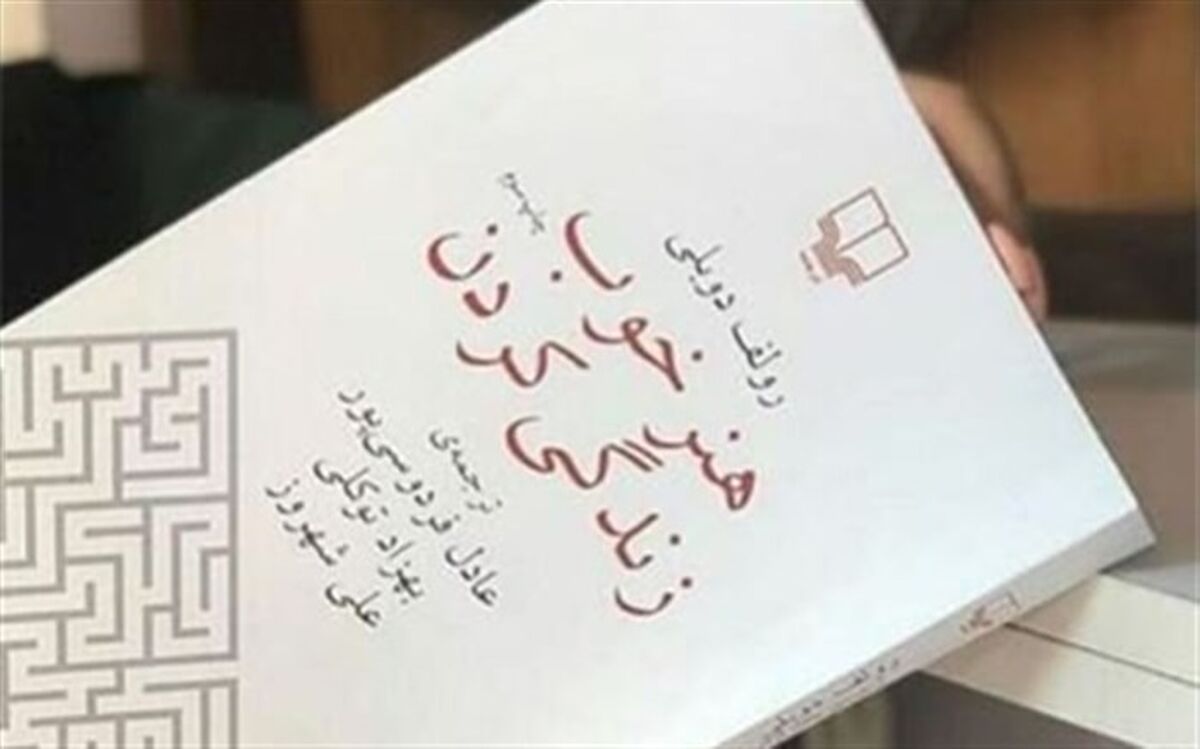 رولف دوبلی
هنر خوب
زندگی کردن
ترجمه‌ی
عادل فردوسی‌پور
بهزاد توکلی
علی شهروز
رولف دوبلی